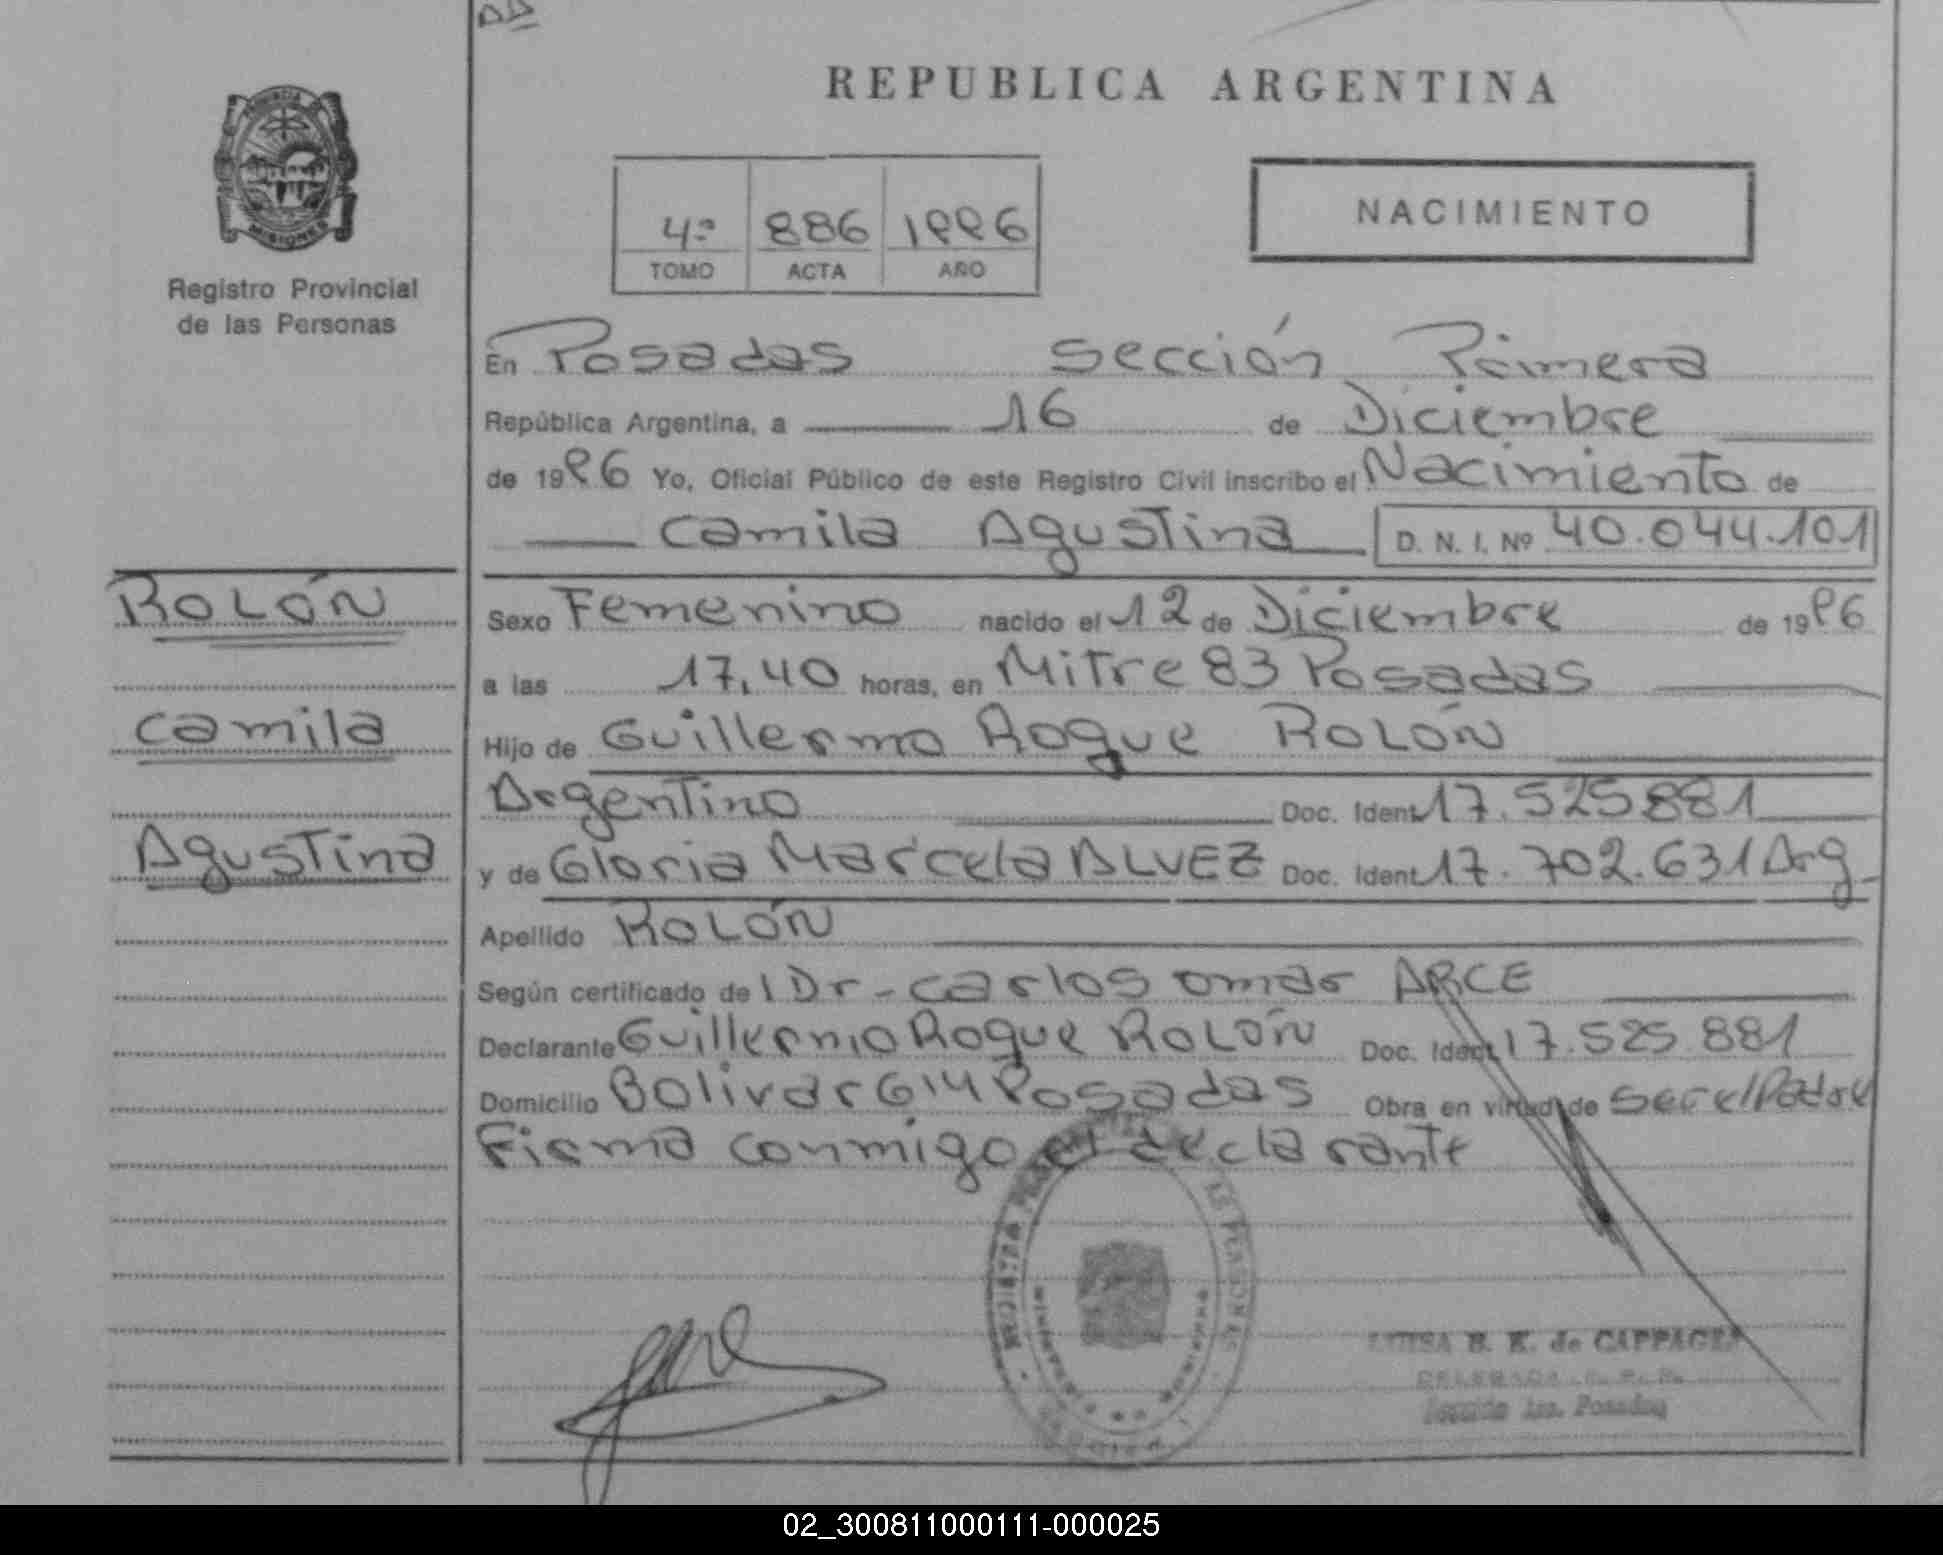 REPUBLICA ARGENTINA
PROVINCIA
MISIONES
Registro Provincial
de las Personas
4º 886 1996
TOMO ACTA AÑO
NACIMIENTO
En Posadas Sección Primera
República Argentina, a 16 de Diciembre
de 1996 Yo, Oficial Público de este Registro Civil inscribo el Nacimiento de
Camila Agustina D. N. I. Nº 40.044.101
ROLÓN
Camila
Agustina
Sexo Femenino nacido el 12 de Diciembre de 1996
a las 17,40 horas, en Mitre 83 Posadas
Hijo de Guillermo Roque ROLÓN
Argentino Doc. Ident. 17.525.881
y de Gloria Marcela ALVEZ Doc. Ident. 17.702.631 Arg
Apellido ROLÓN
Según certificado del Dr. Carlos Omar ARCE
Declarante Guillermo Roque ROLÓN Doc. Ident. 17.525.881
Domicilio Bolivar 614 Posadas Obra en virtud de ser el Padre
Firma conmigo el declarante
LUISA B. K. de
DELEGADA R. P. P.
Sección 1ra. Posadas
02_300811000111-000025